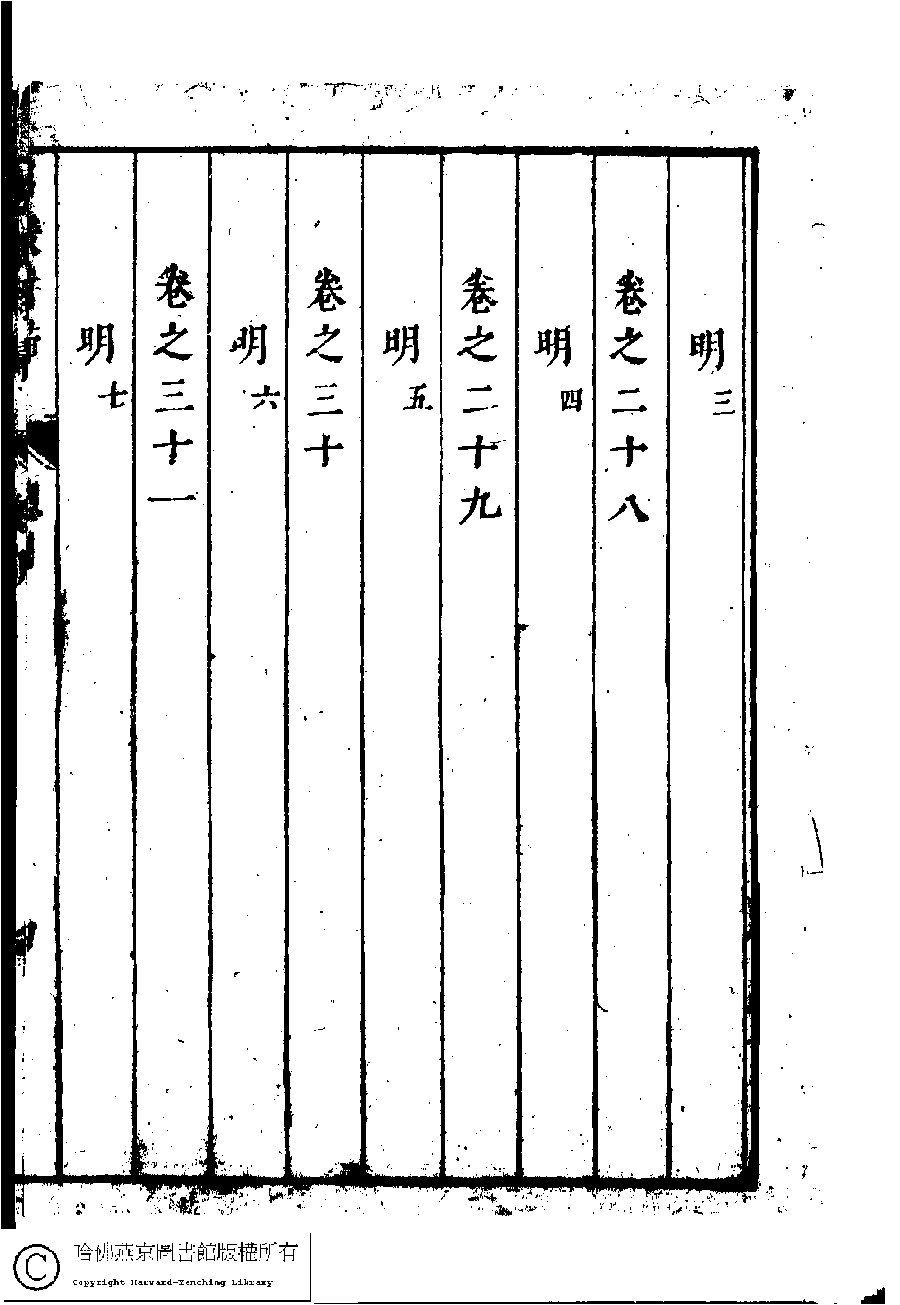 明三
卷之二十八
明四
卷之二十九
明五
卷之三十
明六
卷之三十一
明七
哈佛燕京圖書館版權所有
Copyright Harvard-Yenching Library